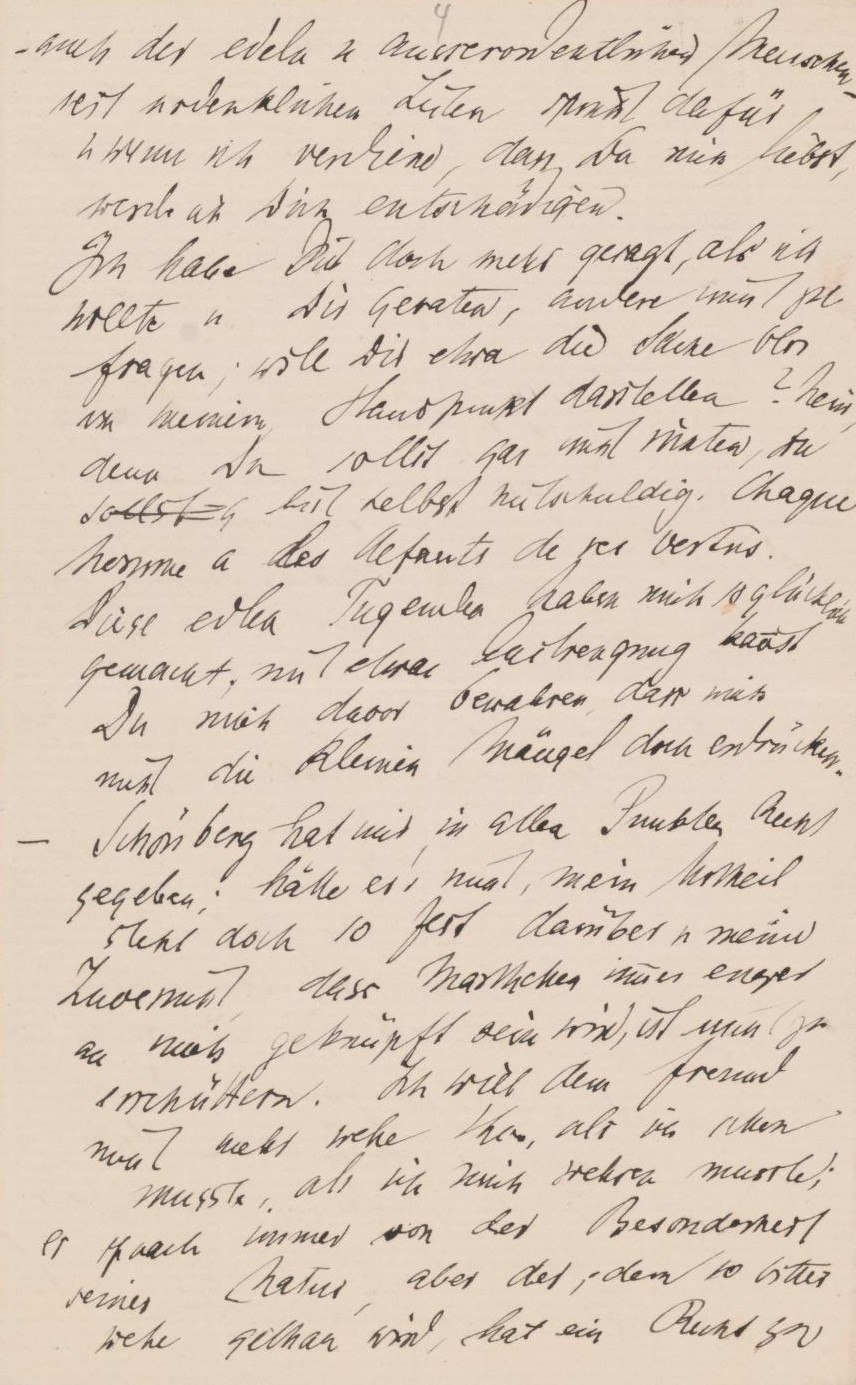 4
- auch der edeln u ausserordentlichen Menschen
seit undenklichen Zeiten spricht dafür
u wenn ich verdiene, dass Du mich liebst,
werde ich Dich entschädigen.
Ich habe Dir doch mehr gesagt, als ich
wollte u Dir geraten, andere nicht zu
fragen; will Dir etwa die Sache blos
von meinem Standpunkt darstellen? Nein,
denn Du sollst gar nicht richten, Du
bist selbst mitschuldig. Chaque
homme a les defauts de ses vertus.
Diese edlen Tugenden haben mich so glücklich
gemacht, mit etwas Anstrengung kannst
Du mich davor bewahren, dass mich
nicht die kleinen Mängel doch erdrücken.
- Schönberg hat mir in allen Punkten Recht
gegeben; hätte er's nicht, mein Urtheil
steht doch so fest darüber u meine
Zuversicht, dass Mathilden immer enger
an mich geknüpft sein wird, ist nicht zu
erschüttern. Ich will dem Freund
nicht mehr wehe thun, als ich schon
musste, als ich mich wehren musste;
er sprach immer von der Besonderheit
seiner Natur, aber der, dem so bitter
wehe gethan wird, hat ein Recht zu